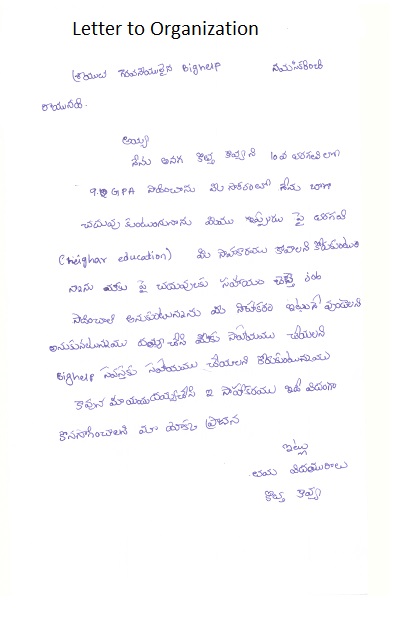 Letter to Organization
శ్రీయుత గౌరవనీయులైన Bighelp నమస్కరించి
రాయునది.
అయ్యా
నేను అనగా కొట్ర కావ్యని 10వ తరగతిలో
9.0 GPA సాధించాను మీ సహకారంతో నేను బాగా
చదువు కుంటున్నాను మరియు ఇప్పుడు పై తరగతి
(heighar education) మీ సాహకారము కావాలని కోరుకుంటు
నాను మాకు పై చదువులకు సహాయం చేస్తే job
సాధించాలి అనుకుంటున్నాను మీ సాహకారం ఇట్లానే వుండాలని
అనుకుంటున్నాము దయ చేసి మాకు సాహయము చేయాలని
Bighelp సంస్థకు సహాయము చేయాలని కోరుకుంటున్నాము
కావున మాయందుదయచేసి ఈ సాహాకారము ఇదే విదంగా
కొనసాగించాలని మా యొక్క ప్రార్ధన
ఇట్లు
తమ విదేయురాలు
కొట్ర కావ్య